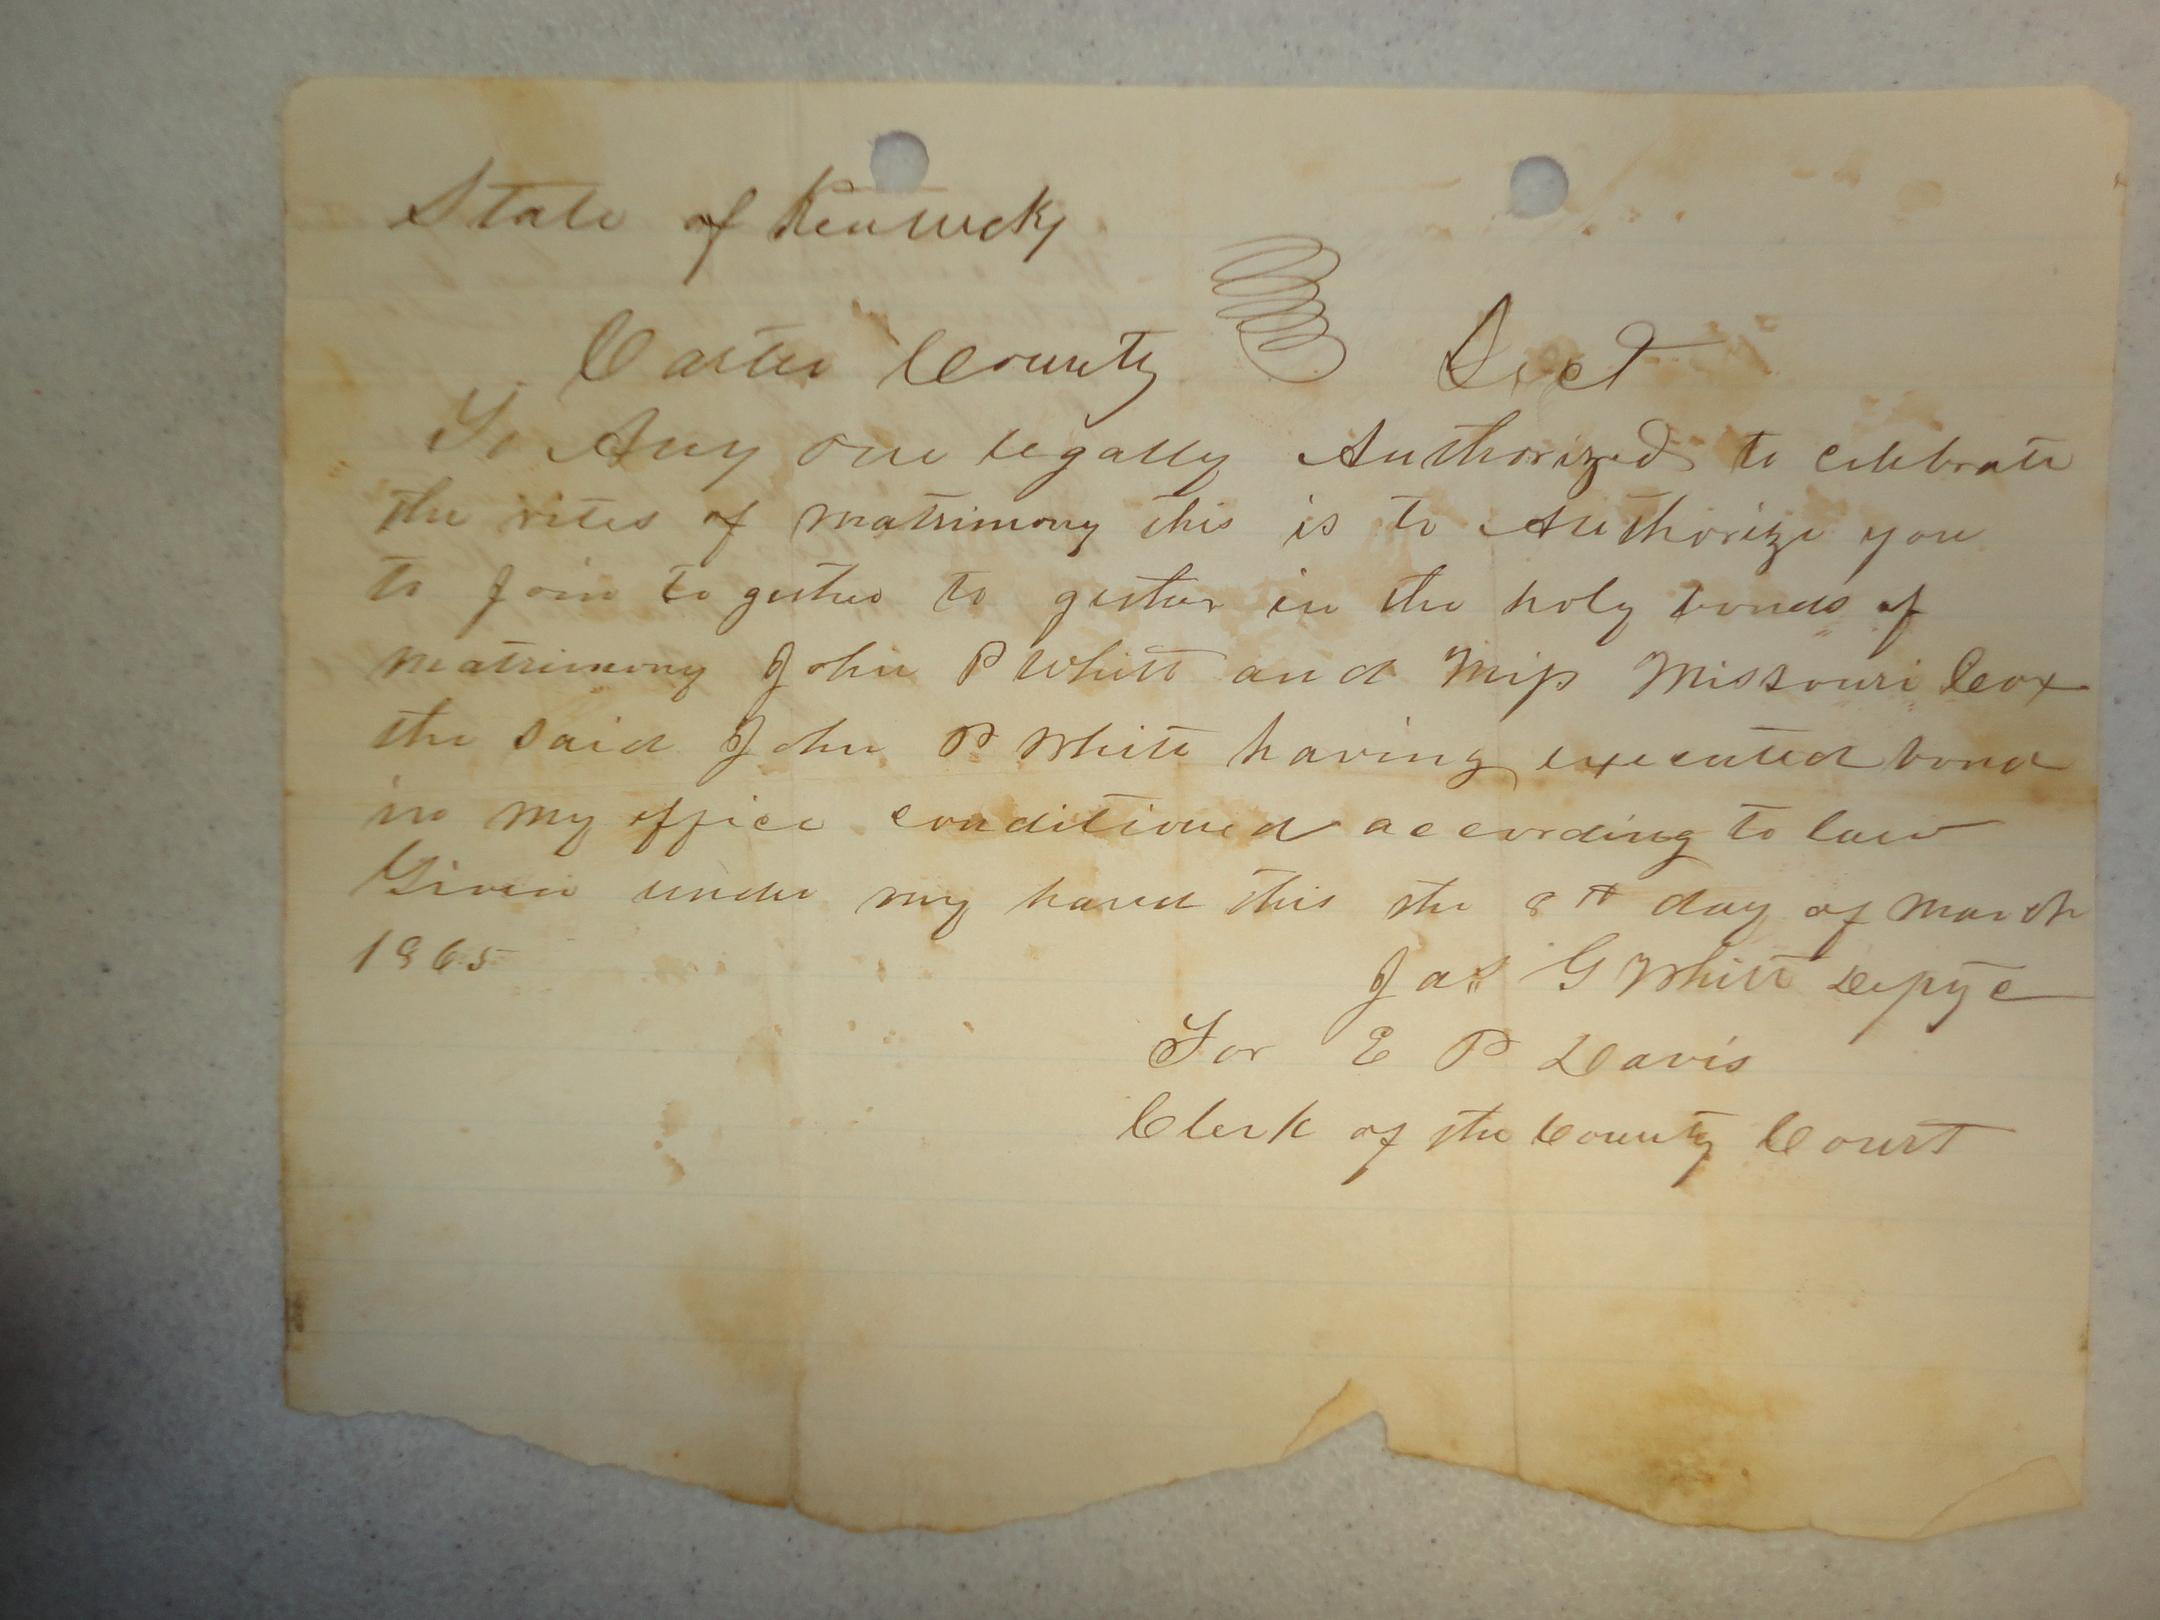 State of Kentucky
Carter County Sct
To Any one legally Authorized to celebrate
the rites of matrimony this is to Authorize you
to Join to gether to gether in the holy bonds of
matrimony John P White and Miss Missouri Cox
the said John P White having executed bond
in my office conditioned according to law
Given under my hand this the 8th day of March
1865
Jas G White Depty c
For E P Davis
Clerk of the County Court